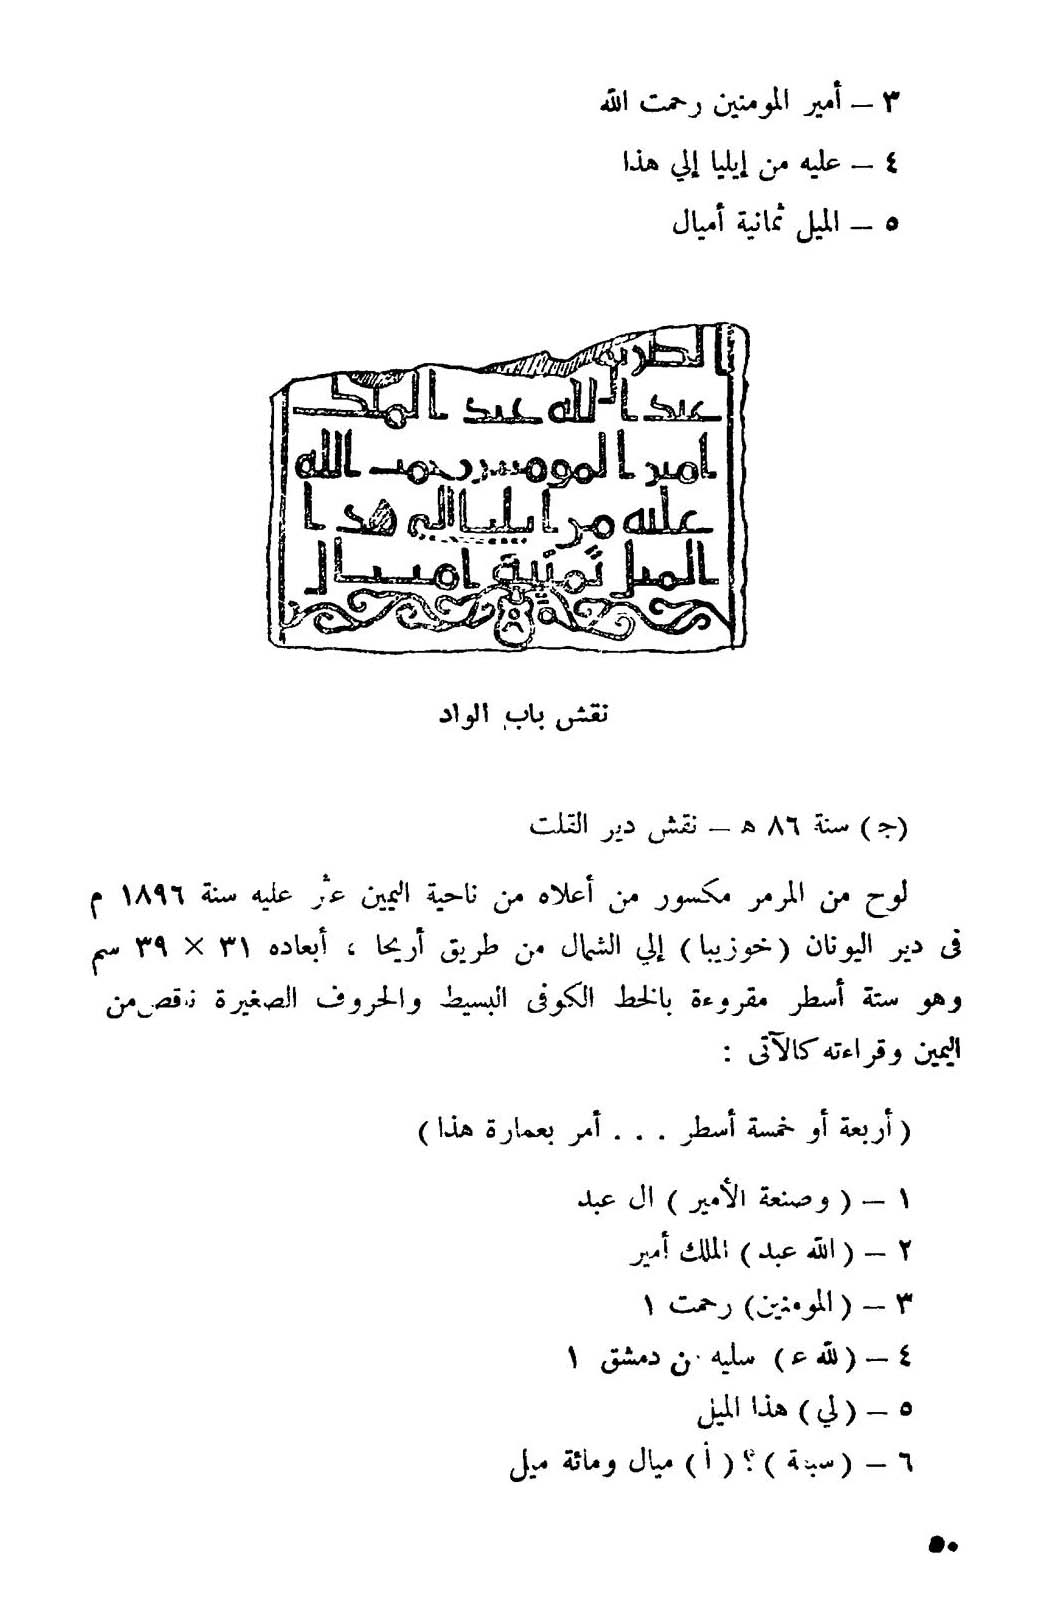 ٣ – أمير المومنين رحمت الله
٤ – عليه من إيليا إلي هذا
٥ – الميل ثمانية أميال
الطريق
عبد الله عبد الملك
امير المومنين رحمت الله
عليه من ايليا الى هذا
الميل ثمنية اميال
نقش باب الواد
(ج) سنة ٨٦ ه – نقش دير القلت
لوح من المرمر مكسور من أعلاه من ناحية اليمين عثر عليه سنة ١٨٩٦ م
فى دير اليونان (خوزيبا) إلي الشمال من طريق أريحا ، أبعاده ٣١ × ٣٩ سم
وهو ستة أسطر مقروءة بالخط الكوفى البسيط والحروف الصغيرة ناقص من
اليمين وقراءته كالآتى :
(أربعة أو خمسة أسطر . . . أمر بعمارة هذا)
١ – (وصنعة الأمير) ال عبد
٢ – (الله عبد) الملك أمير
٣ – (المومنين) رحمت ١
٤ – (لله ع) سليه من دمشق ١
٥ – (لي) هذا الميل
٦ – (سبعة)؟ (أ) ميال ومائة ميل
٥٠